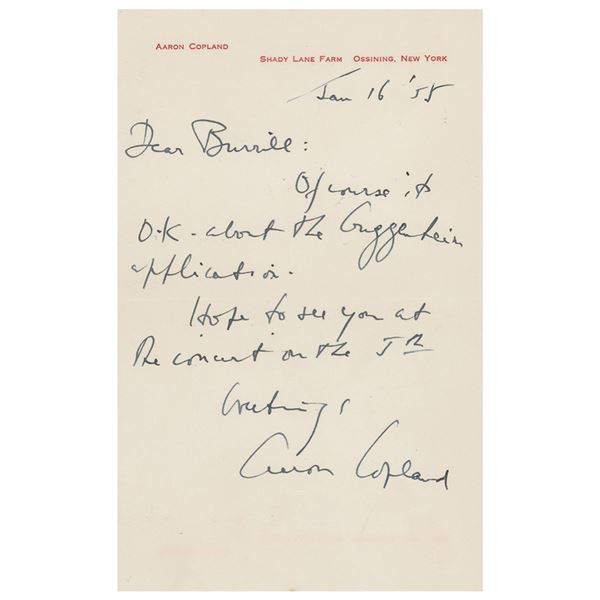 AARON COPLAND
SHADY LANE FARM OSSINING, NEW YORK
Jan 16 '58
Dear Burrill:
Of course it's
O.K. about the Guggenheim
application.
Hope to see you at
the concert on the 5th
Greetings
Aaron Copland